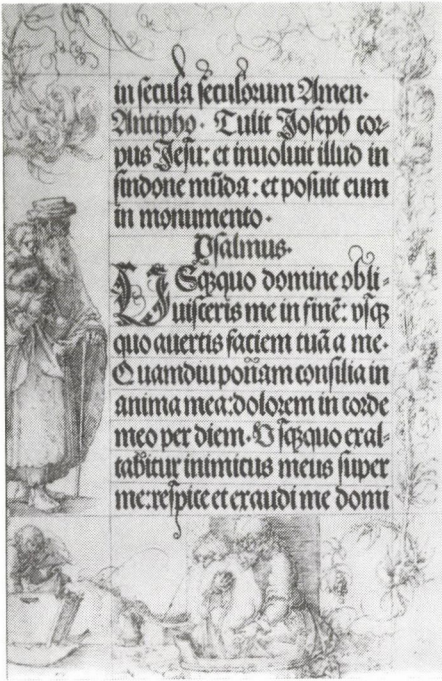 in secula seculorum Amen.
Antipho. Tulit Joseph cor-
pus Jesu: et inuoluit illud in
sindone mūda: et posuit eum
in monumento.
Psalmus.
VSqꝫquo domine obli-
uisceris me in finē: vsqꝫ
quo auertis faciem tuā a me.
Quamdiu ponam consilia in
anima mea: dolorem in corde
meo per diem. Vsqꝫquo exal-
tabitur inimicus meus super
me: respice et exaudi me domi